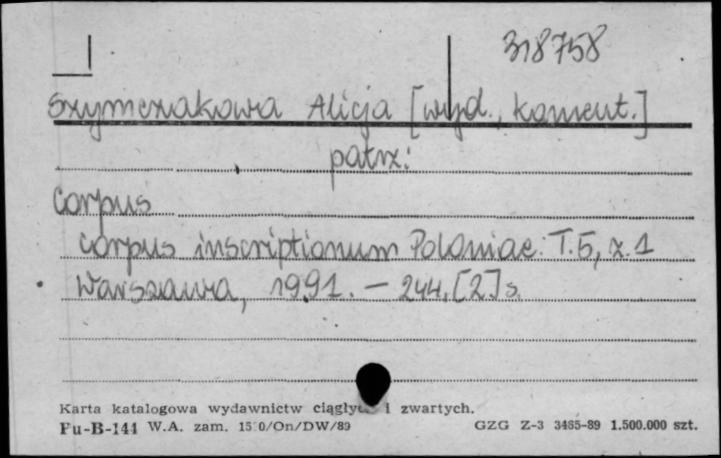 318758
Szymczakowa Alicja [wyd., koment.]
patrz:
Corpus
Corpus inscriptionum Poloniae. T.5, z.1
Warszawa, 1991. — 244, [2] s.
Karta katalogowa wydawnictw ciągłych i zwartych.
Pu-B-144 W.A. zam. 15 0/On/DW/89 GZG Z-3 3465-89 1.500.000 szt.